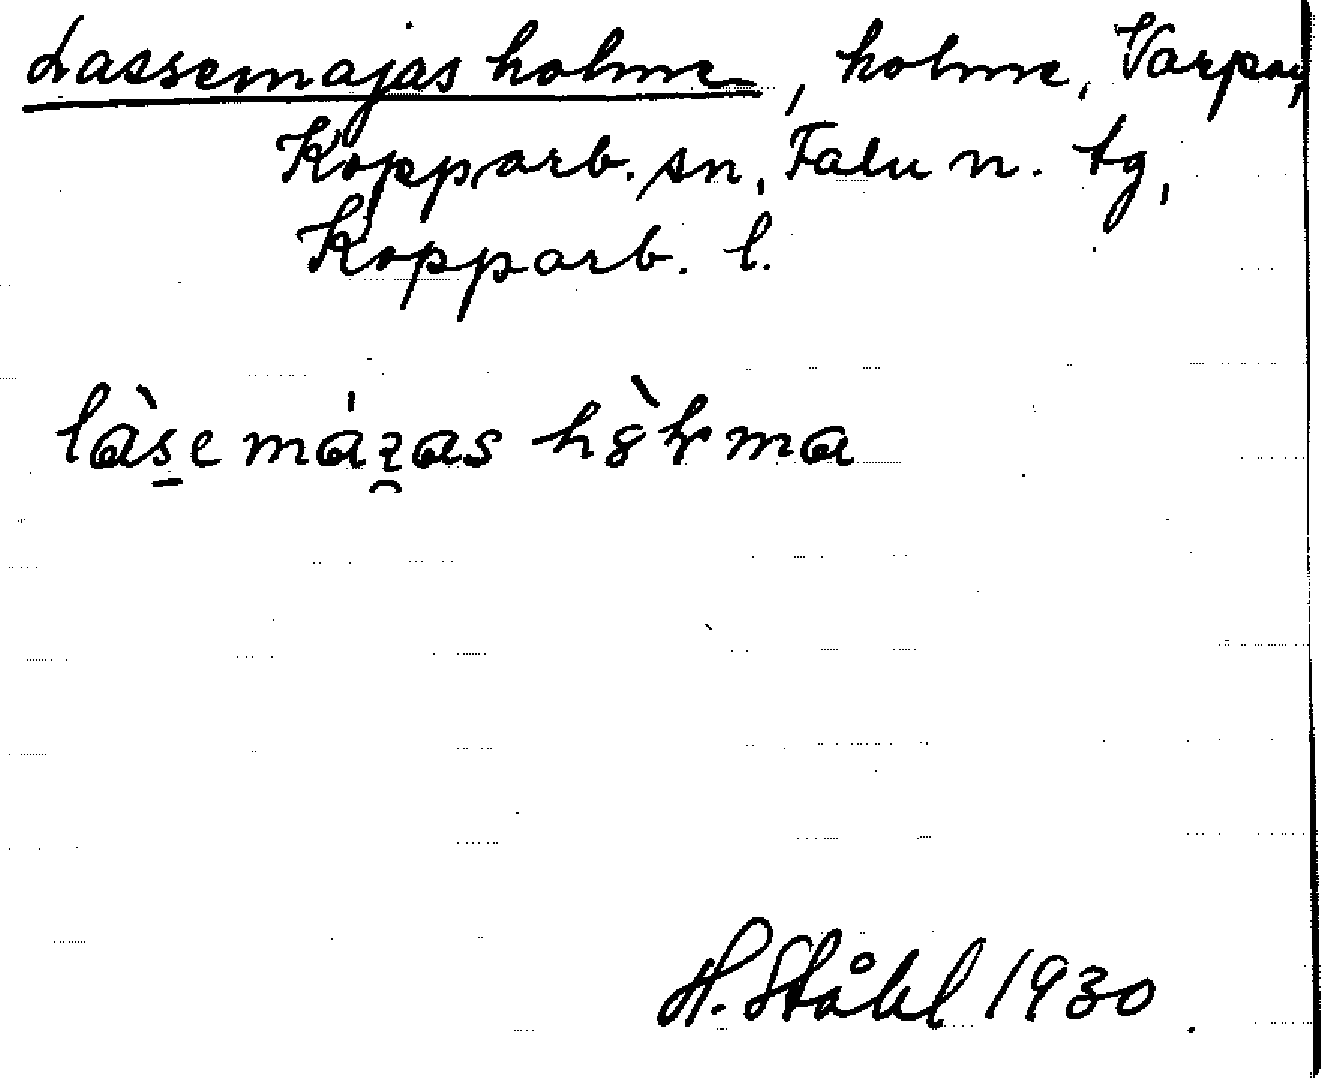 Lassemajas holme, holme, Varpan,
Kopparb. sn, Falu n. tg,
Kopparb. l.
H. Ståhl 1930.